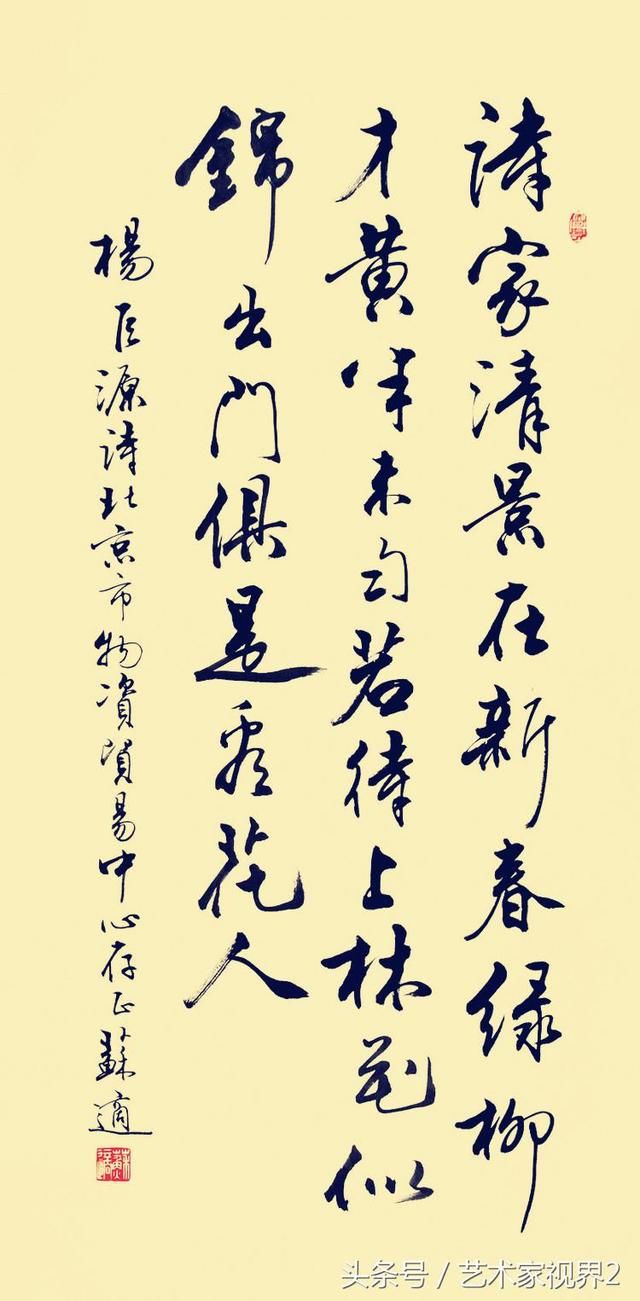 詩家清景在新春綠柳
才黃半未勻若待上林花似
錦出門俱是看花人
楊巨源詩北京市物資貿易中心存正蘇適
头条号 / 艺术家视界2